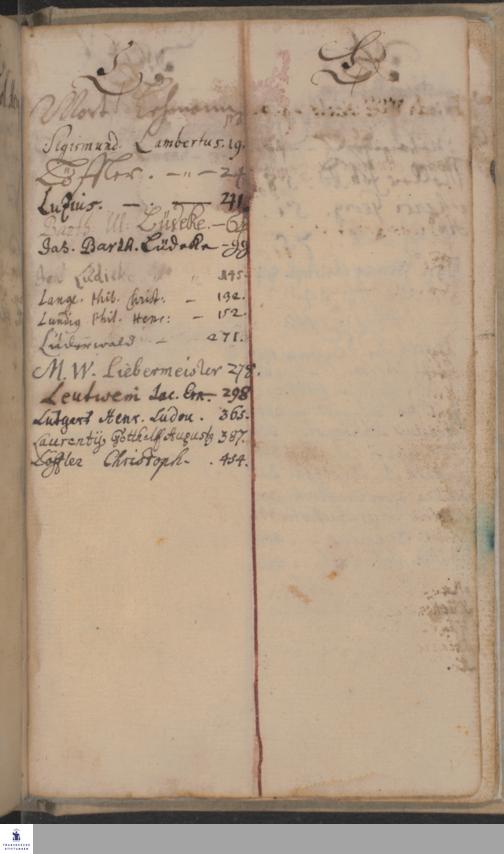 L.
Lehmann
Sigismund. Lambertus. 19.
Löffler. — „ — 24
Lucius. — . — 241
Barth. M. Lüdeke. — 69
Jah. Barth. Lüdeke — 99
Lüdicke „ 145.
Lange. Phil. Christ: — 132.
Lundig Phil. Henr: — 152.
Lüderwald — 271.
M. W. Liebermeister 278.
Leutwein Jac. Ern. — 298
Lutgert Henr. Ludou. 365.
Laurentÿ Gotthelf August 387.
Löffler Christoph. . 454.
FRANCKESCHE
STIFTUNGEN